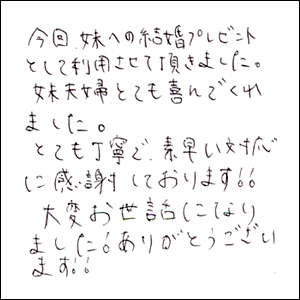 今回、妹への結婚プレゼント
として利用させて頂きました。
妹夫婦とても喜んでくれ
ました。
とても丁寧で、素早い対応
に感謝しております!!
大変お世話になり
ました!ありがとうござい
ます!!